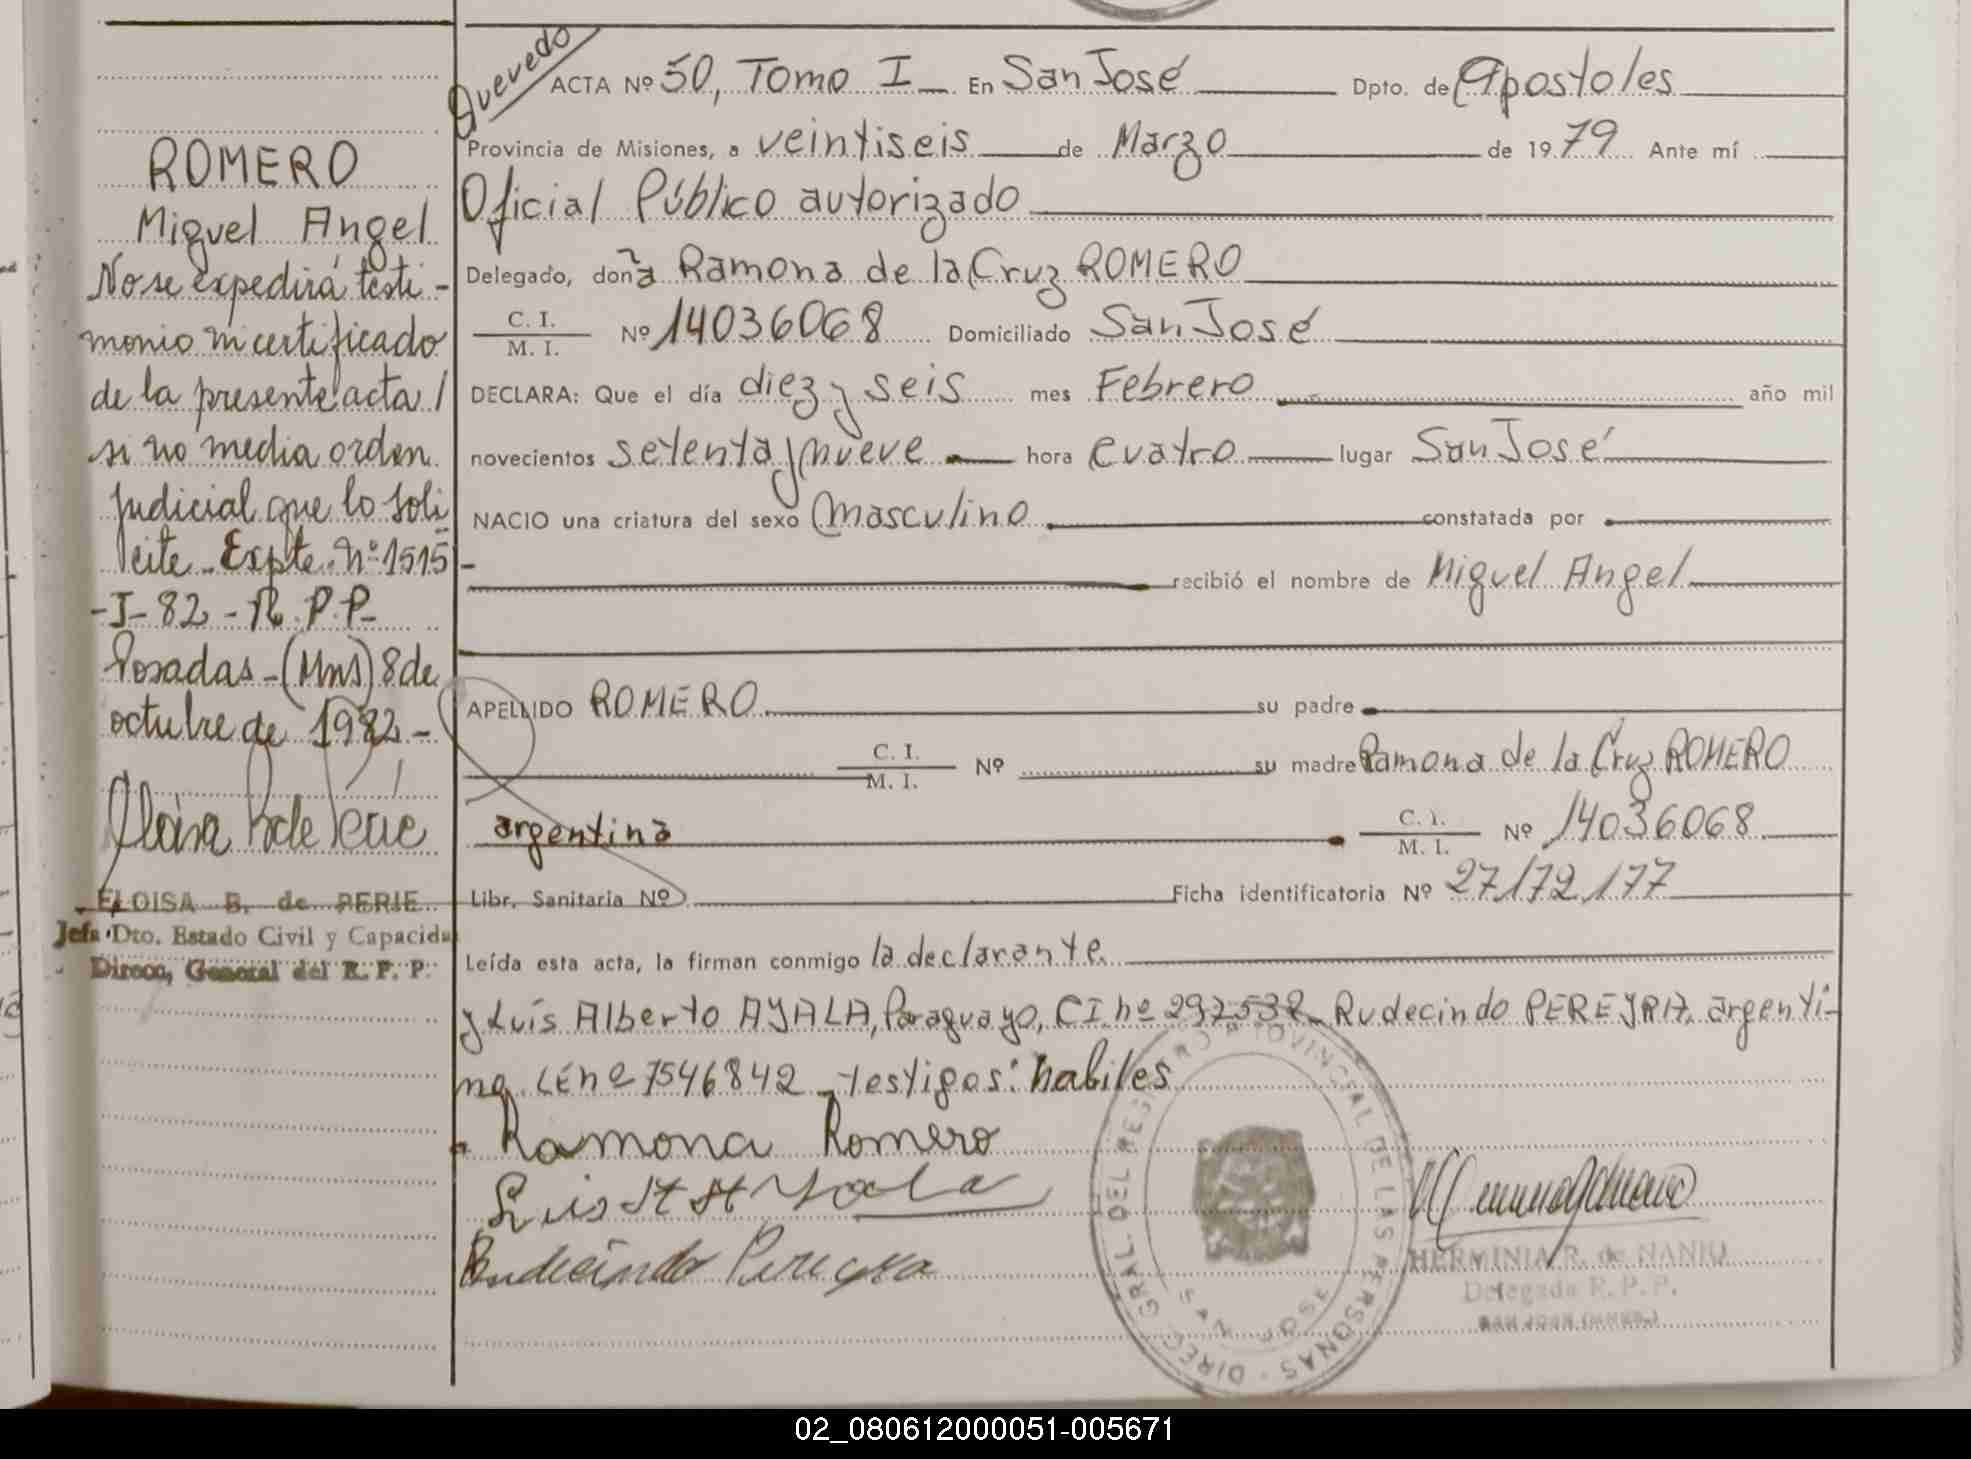 Quevedo
ACTA Nº 50, Tomo I En San José Dpto. de Apostoles
Provincia de Misiones, a veintiseis de Marzo de 1979 Ante mí
Oficial Público autorizado
Delegado, doña Ramona de la Cruz ROMERO
C. I.
M. I. Nº 14036068 Domiciliado San José
DECLARA: Que el día diez y seis mes Febrero año mil
novecientos setenta y nueve hora cuatro lugar San José
NACIO una criatura del sexo Masculino constatada por
recibió el nombre de Miguel Angel
APELLIDO ROMERO su padre
C. I.
M. I. Nº su madre Ramona de la Cruz ROMERO
argentina C. I.
M. I. Nº 14036068
Libr. Sanitaria Nº Ficha identificatoria Nº 27/72.177
Leída esta acta, la firman conmigo la declarante
y Luis Alberto AYALA, Paraguayo, CI. nº 297538 Rudecindo PEREYRA, argenti-
no LE nº 7546842 - testigos: habiles
Ramona Romero
Luis A Ayala
Rudecindo Pereyra
ROMERO
Miguel Angel
No se expedirá testi-
monio ni certificado
de la presente acta /
si no media orden
judicial que lo soli
cite - Expte. Nº 1515-
-J- 82 - R.P.P-
Posadas - (Mns) 8 de
octubre de 1982 -
ELOISA B. de PERIE
Jefa Dto. Estado Civil y Capacidad
Direcc, General del R. P. P.
DIREC. GRAL. DEL REGISTRO PROVINCIAL DE LAS PERSONAS
SAN JOSE
HERMINIA R. de NANIU
Delegada R. P. P.
02_080612000051-005671